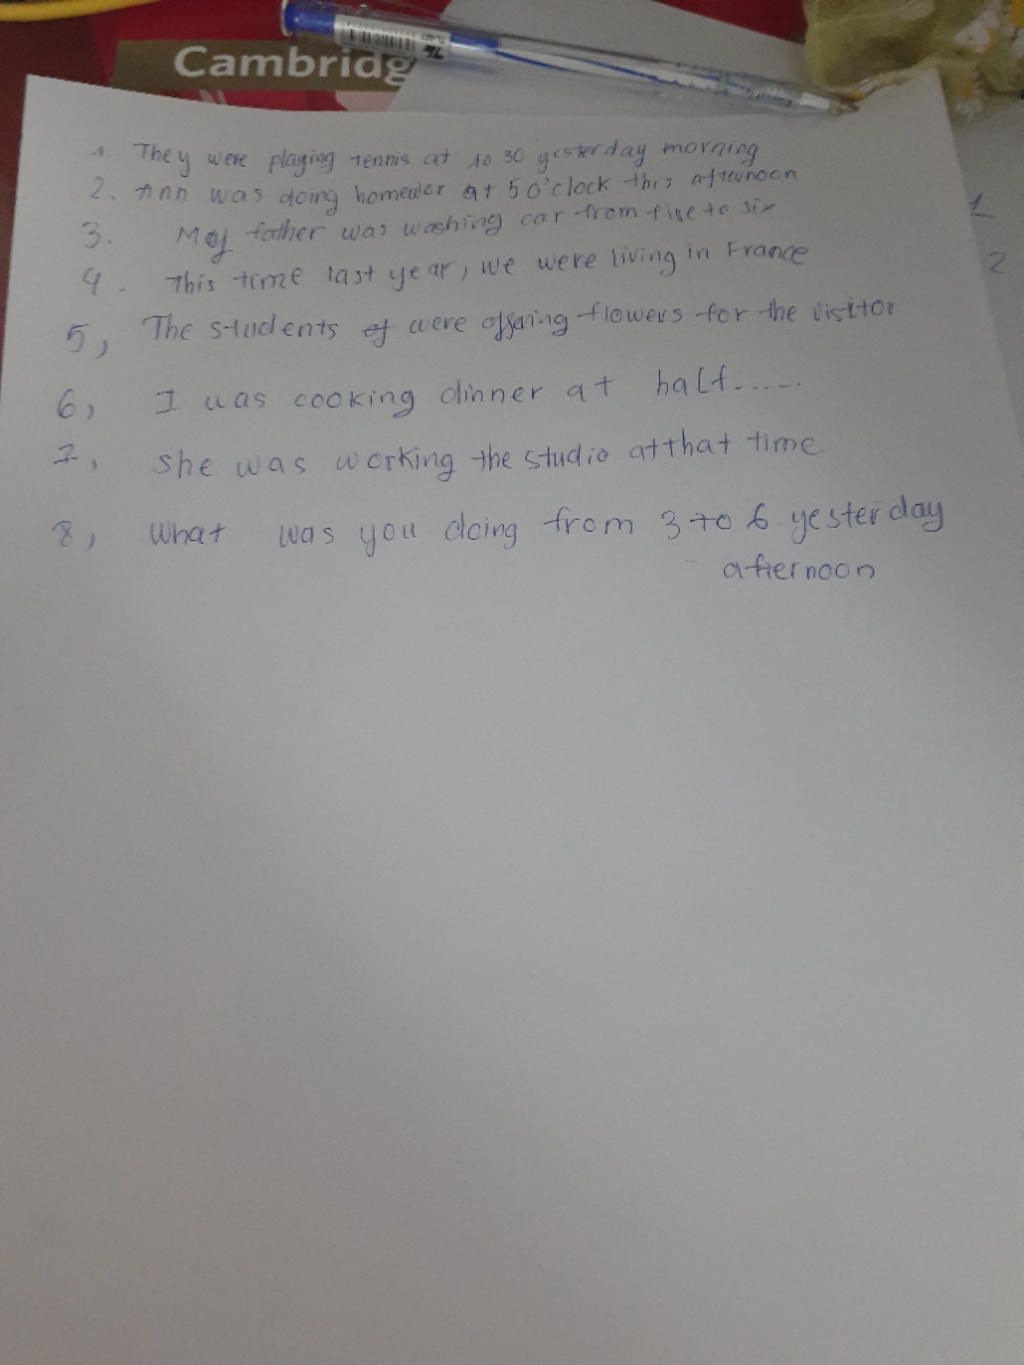 Cambridg
1. They were playing tennis at 10 30 yesterday morning
2. Ann was doing homewor at 5 o'clock this afternoon
3. My father was washing car from five to six
4. This time last year, we were living in France
5, The students were offering flowers for the visitor
6, I was cooking dinner at half......
7, she was working the studio at that time
8, What was you doing from 3 to 6 yesterday
afternoon
1
2